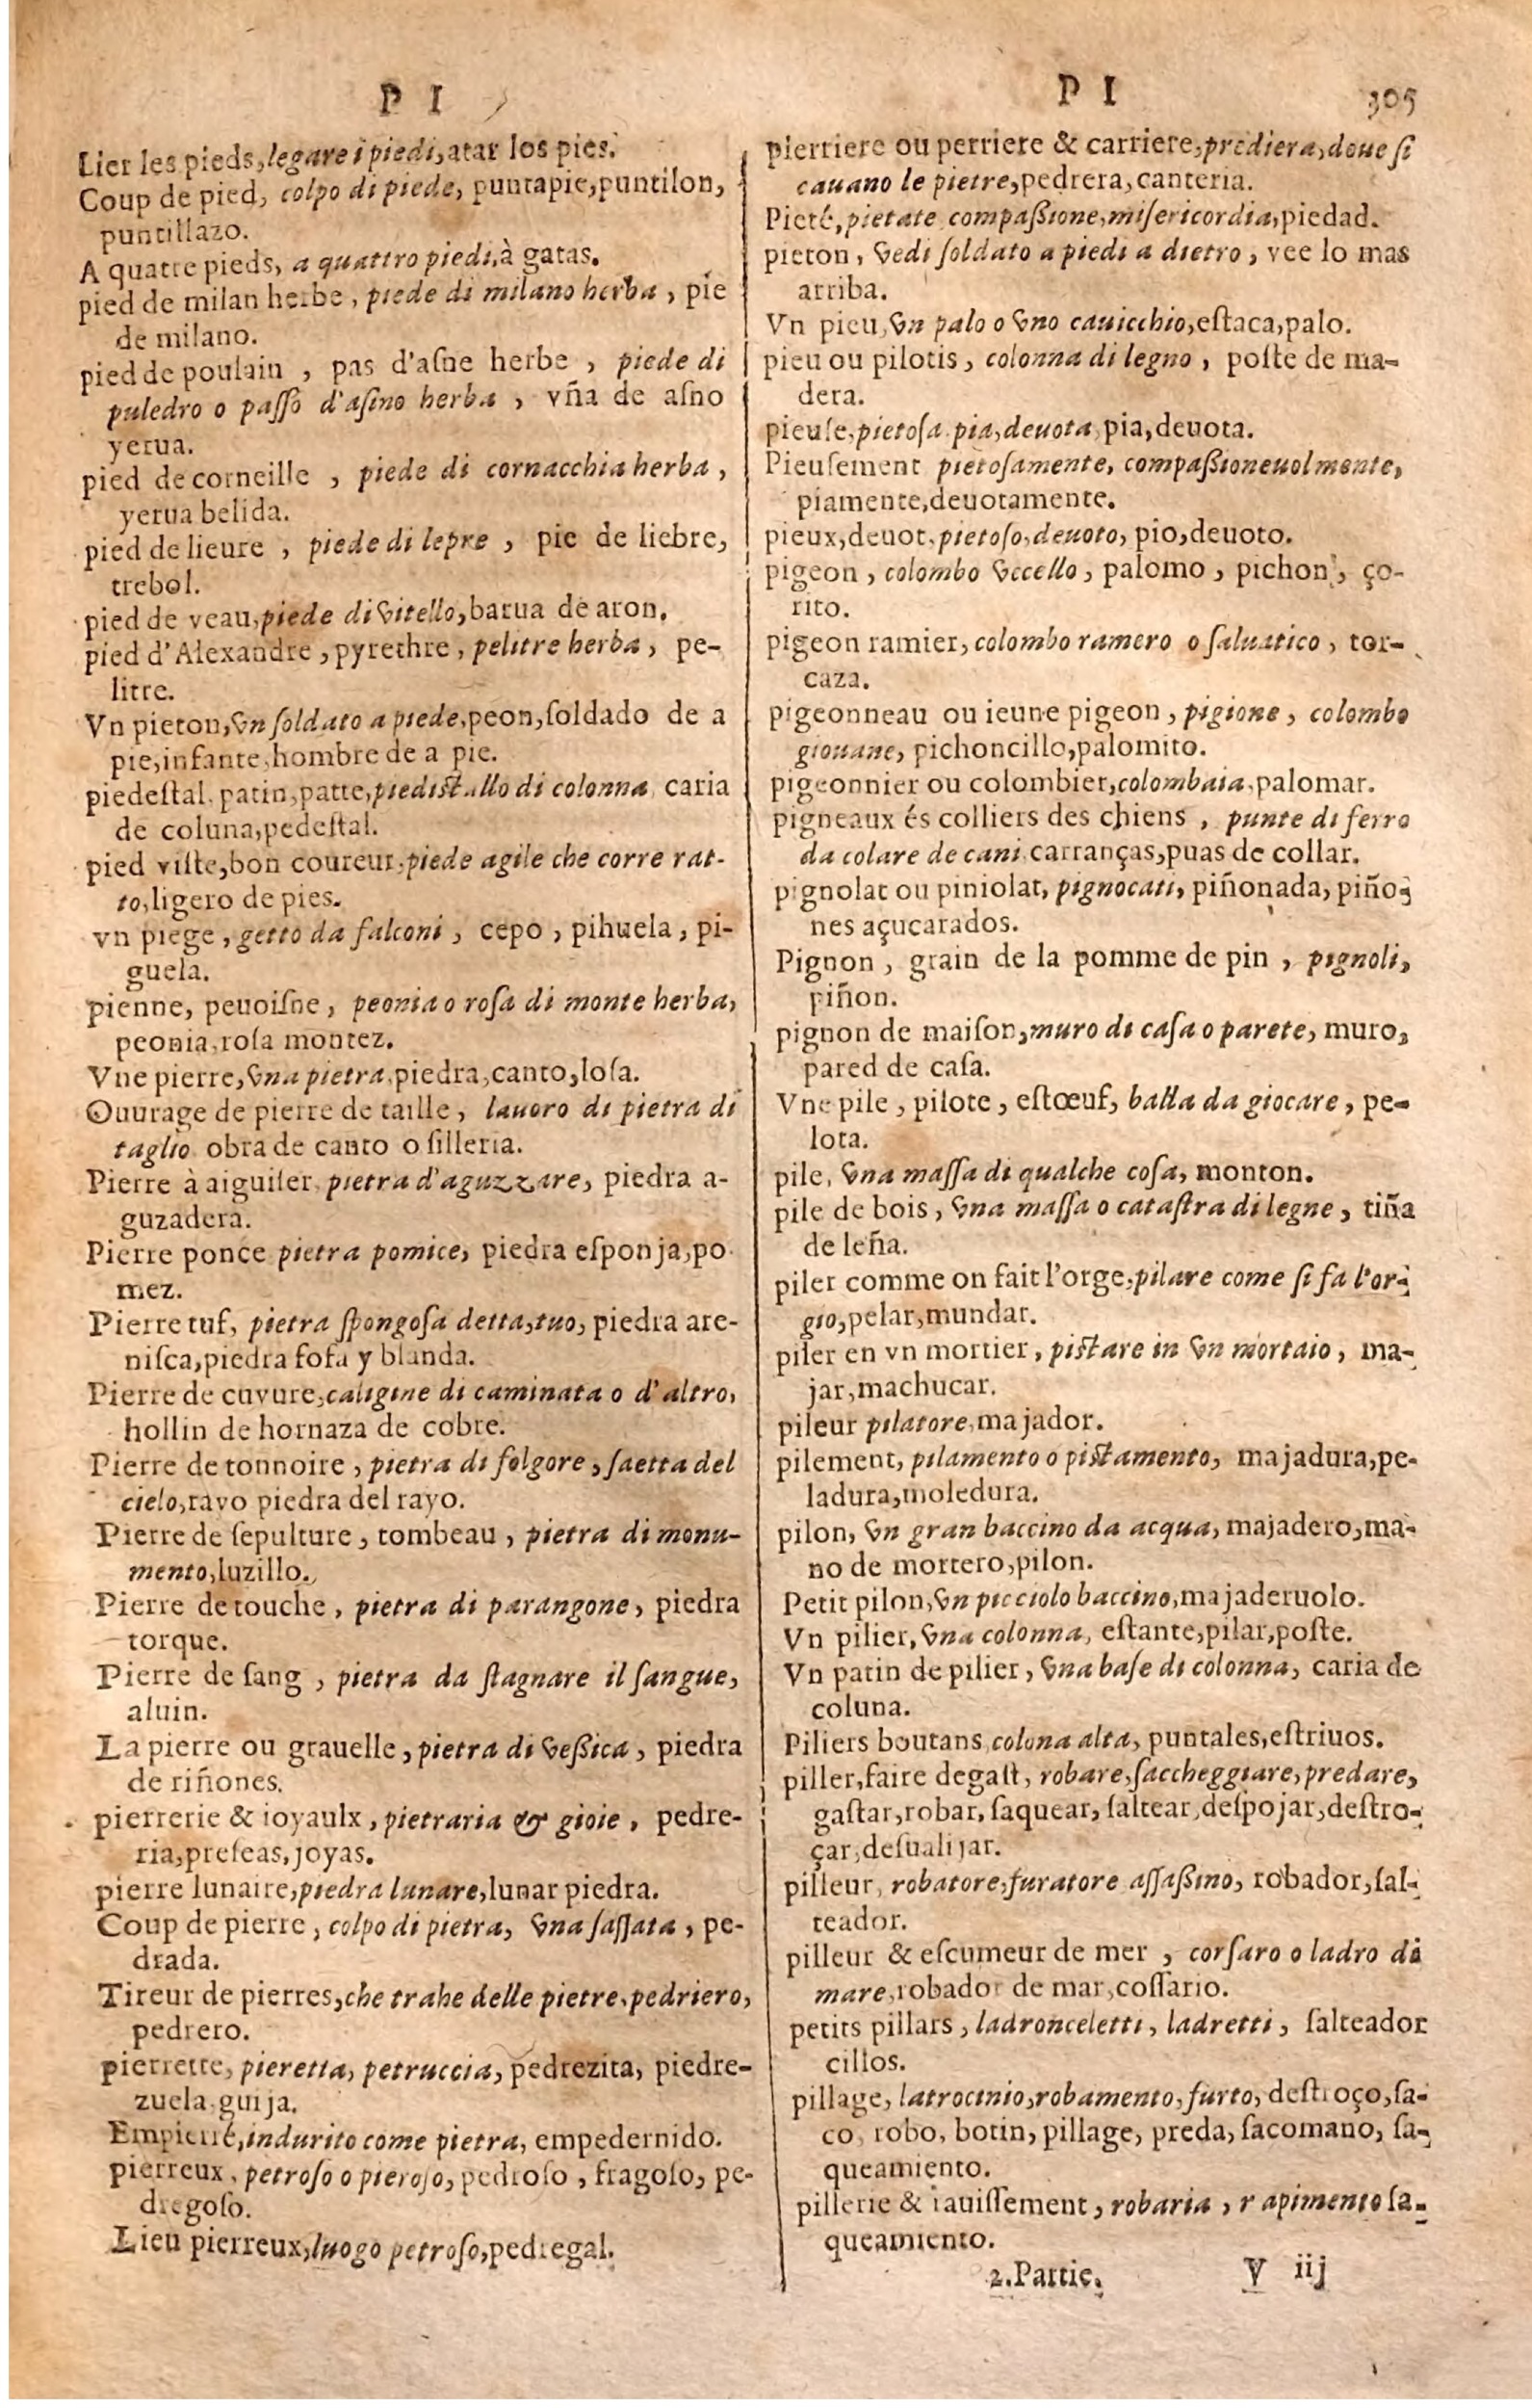 P I
Lier les pieds, legare i piedi, atar los pies.
Coup de pied, colpo di piede, puntapie, puntilon,
puntillazo.
A quatre pieds, a quattro piedi, à gatas.
pied de milan herbe, piede di milano herba, pie
de milano.
pied de poulain, pas d'aſne herbe, piede di
puledro o paſſo d'aſino herba, vña de aſno
yerua.
pied de corneille, piede di cornacchia herba,
yerua belida.
pied de lieure, piede di lepre, pie de liebre,
trebol.
pied de veau, piede di vitello, barua de aron.
pied d'Alexandre, pyrethre, pelitre herba, pe-
litre.
Vn pieton, vn ſoldato a piede, peon, ſoldado de a
pie, infante, hombre de a pie.
piedeſtal, patin, patte, piediſtallo di colonna, caria
de coluna, pedeſtal.
pied viſte, bon coureur, piede agile che corre rat-
to, ligero de pies.
vn piege, getto da falconi, cepo, pihuela, pi-
guela.
pienne, peuoiſne, peonia o roſa di monte herba,
peonia, roſa montez.
Vne pierre, vna pietra, piedra, canto, loſa.
Ouurage de pierre de taille, lauoro di pietra di
taglio, obra de canto o ſilleria.
Pierre à aiguiſer, pietra d'aguzzare, piedra a-
guzadera.
Pierre ponce pietra pomice, piedra eſponja, po-
mez.
Pierre tuf, pietra ſpongoſa detta, tuo, piedra are-
niſca, piedra fofa y blanda.
Pierre de cuvure, caligine di caminata o d'altro,
hollin de hornaza de cobre.
Pierre de tonnoire, pietra di folgore, ſaetta del
cielo, rayo piedra del rayo.
Pierre de ſepulture, tombeau, pietra di monu-
mento, luzillo.
Pierre de touche, pietra di parangone, piedra
torque.
Pierre de ſang, pietra da ſtagnare il ſangue,
aluin.
La pierre ou grauelle, pietra di veßica, piedra
de riñones.
pierrerie & ioyaulx, pietraria & gioie, pedre-
ria, preſeas, joyas.
pierre lunaire, piedra lunare, lunar piedra.
Coup de pierre, colpo di pietra, vna ſaſſata, pe-
drada.
Tireur de pierres, che trahe delle pietre, pedriero,
pedrero.
pierrette, pieretta, petruccia, pedrezita, piedre-
zuela, guija.
Empierré, indurito come pietra, empedernido.
pierreux, petroſo o pieroſo, pedroſo, fragoſo, pe-
dregoſo.
Lieu pierreux, luogo petroſo, pedregal.
P I 305
pierriere ou perriere & carriere, prediera, doue ſi
cauano le pietre, pedrera, canteria.
Pieté, pietate compaßione, miſericordia, piedad.
pieton, vedi ſoldato a piedi a dietro, vee lo mas
arriba.
Vn pieu, vn palo o vno cauicchio, eſtaca, palo.
pieu ou pilotis, colonna di legno, poſte de ma-
dera.
pieuſe, pietoſa pia, deuota, pia, deuota.
Pieuſement pietoſamente, compaßioneuolmente,
piamente, deuotamente.
pieux, deuot, pietoſo, deuoto, pio, deuoto.
pigeon, colombo vccello, palomo, pichon, ço-
rito.
pigeon ramier, colombo ramero o ſaluatico, tor-
caza.
pigeonneau ou ieune pigeon, pigione, colombo
giouane, pichoncillo, palomito.
pigeonnier ou colombier, colombaia, palomar.
pigneaux és colliers des chiens, punte di ferro
da colare de cani carranças, puas de collar.
pignolat ou piniolat, pignocati, piñonada, piño-
nes açucarados.
Pignon, grain de la pomme de pin, pignoli,
piñon.
pignon de maiſon, muro di caſa o parete, muro,
pared de caſa.
Vne pile, pilote, eſtœuf, balla da giocare, pe-
lota.
pile, vna maſſa di qualche coſa, monton.
pile de bois, vna maſſa o cataſtra di legne, tiña
de leña.
piler comme on fait l'orge, pilare come ſi fa l'or-
gio, pelar, mundar.
piler en vn mortier, piſtare in vn mortaio, ma-
jar, machucar.
pileur pilatore, majador.
pilement, pilamento o piſtamento, majadura, pe-
ladura, moledura.
pilon, vn gran baccino da acqua, majadero, ma-
no de mortero, pilon.
Petit pilon, vn picciolo baccino, majaderuolo.
Vn pilier, vna colonna, eſtante, pilar, poſte.
Vn patin de pilier, vna baſe di colonna, caria de
coluna.
Piliers boutans, colona alta, puntales, eſtriuos.
piller, faire degaſt, robare, ſaccheggiare, predare,
gaſtar, robar, ſaquear, ſaltear, deſpojar, deſtro-
çar, deſualijar.
pilleur, robatore, furatore aſſaßino, robador, ſal-
teador.
pilleur & eſcumeur de mer, corſaro o ladro di
mare, robador de mar, coſſario.
petits pillars, ladronceletti, ladretti, ſalteador
cillos.
pillage, latrocinio, robamento, furto, deſtroço, ſa-
co, robo, botin, pillage, preda, ſacomano, ſa-
queamiento.
pillerie & rauiſſement, robaria, rapimento ſa-
queamiento.
2. Partie. V iij